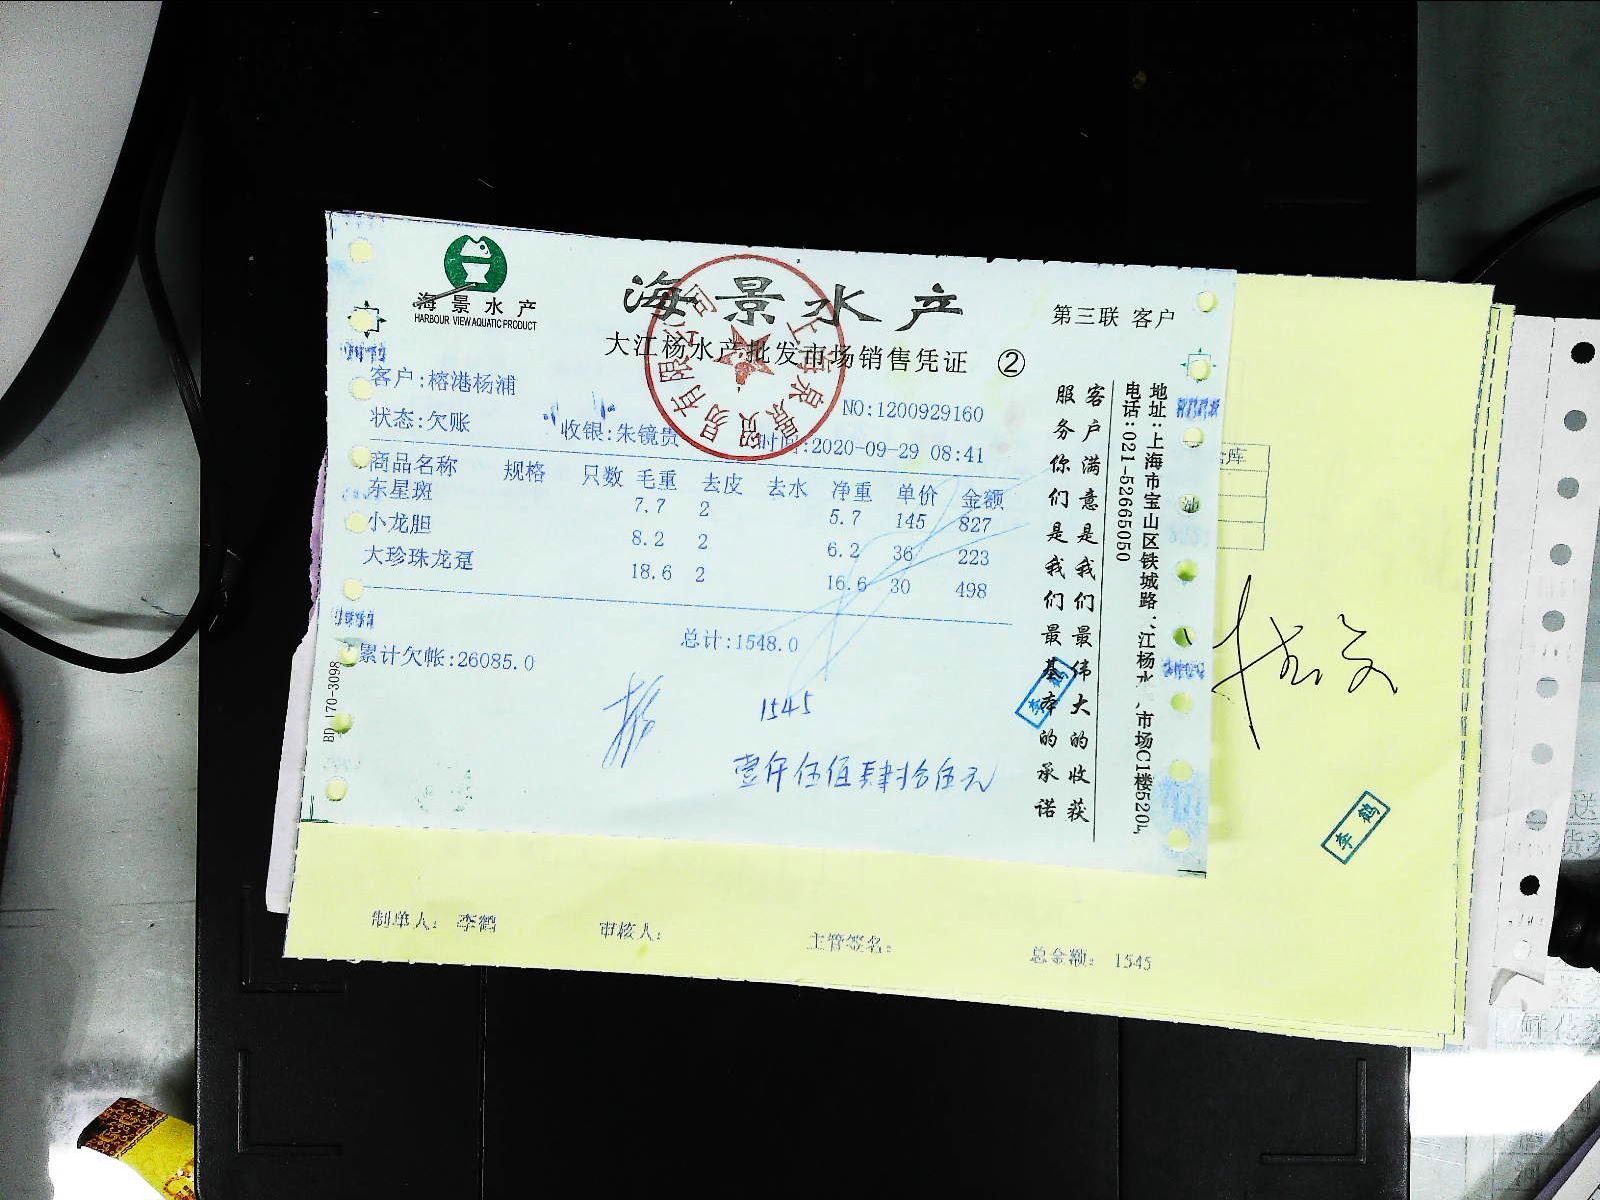 海景水产
HARBOUR VIEW AQUATIC PRODUCT
海景水产
第三联 客户
大江杨水产批发市场销售凭证 ②
客户:榕港杨浦
NO:1200929160
状态:欠账 收银:朱镜贵 时间:2020-09-29 08:41
商品名称 规格 只数 毛重 去皮 去水 净重 单价 金额
东星斑 7.7 2 5.7 145 827
小龙胆 8.2 2 6.2 36 223
大珍珠龙趸 18.6 2 16.6 30 498
总计:1548.0
累计欠帐:26085.0
1545
壹仟伍佰肆拾伍元
客户满意是我们最伟大的收获
服务你们是我们最基本的承诺
地址:上海市宝山区铁城路
江杨水
市场C1楼520
电话:021-52665050
BD 170-3098
李鹤
李鹤
制单人: 李鹤 审核人: 主管签名: 总金额: 1545